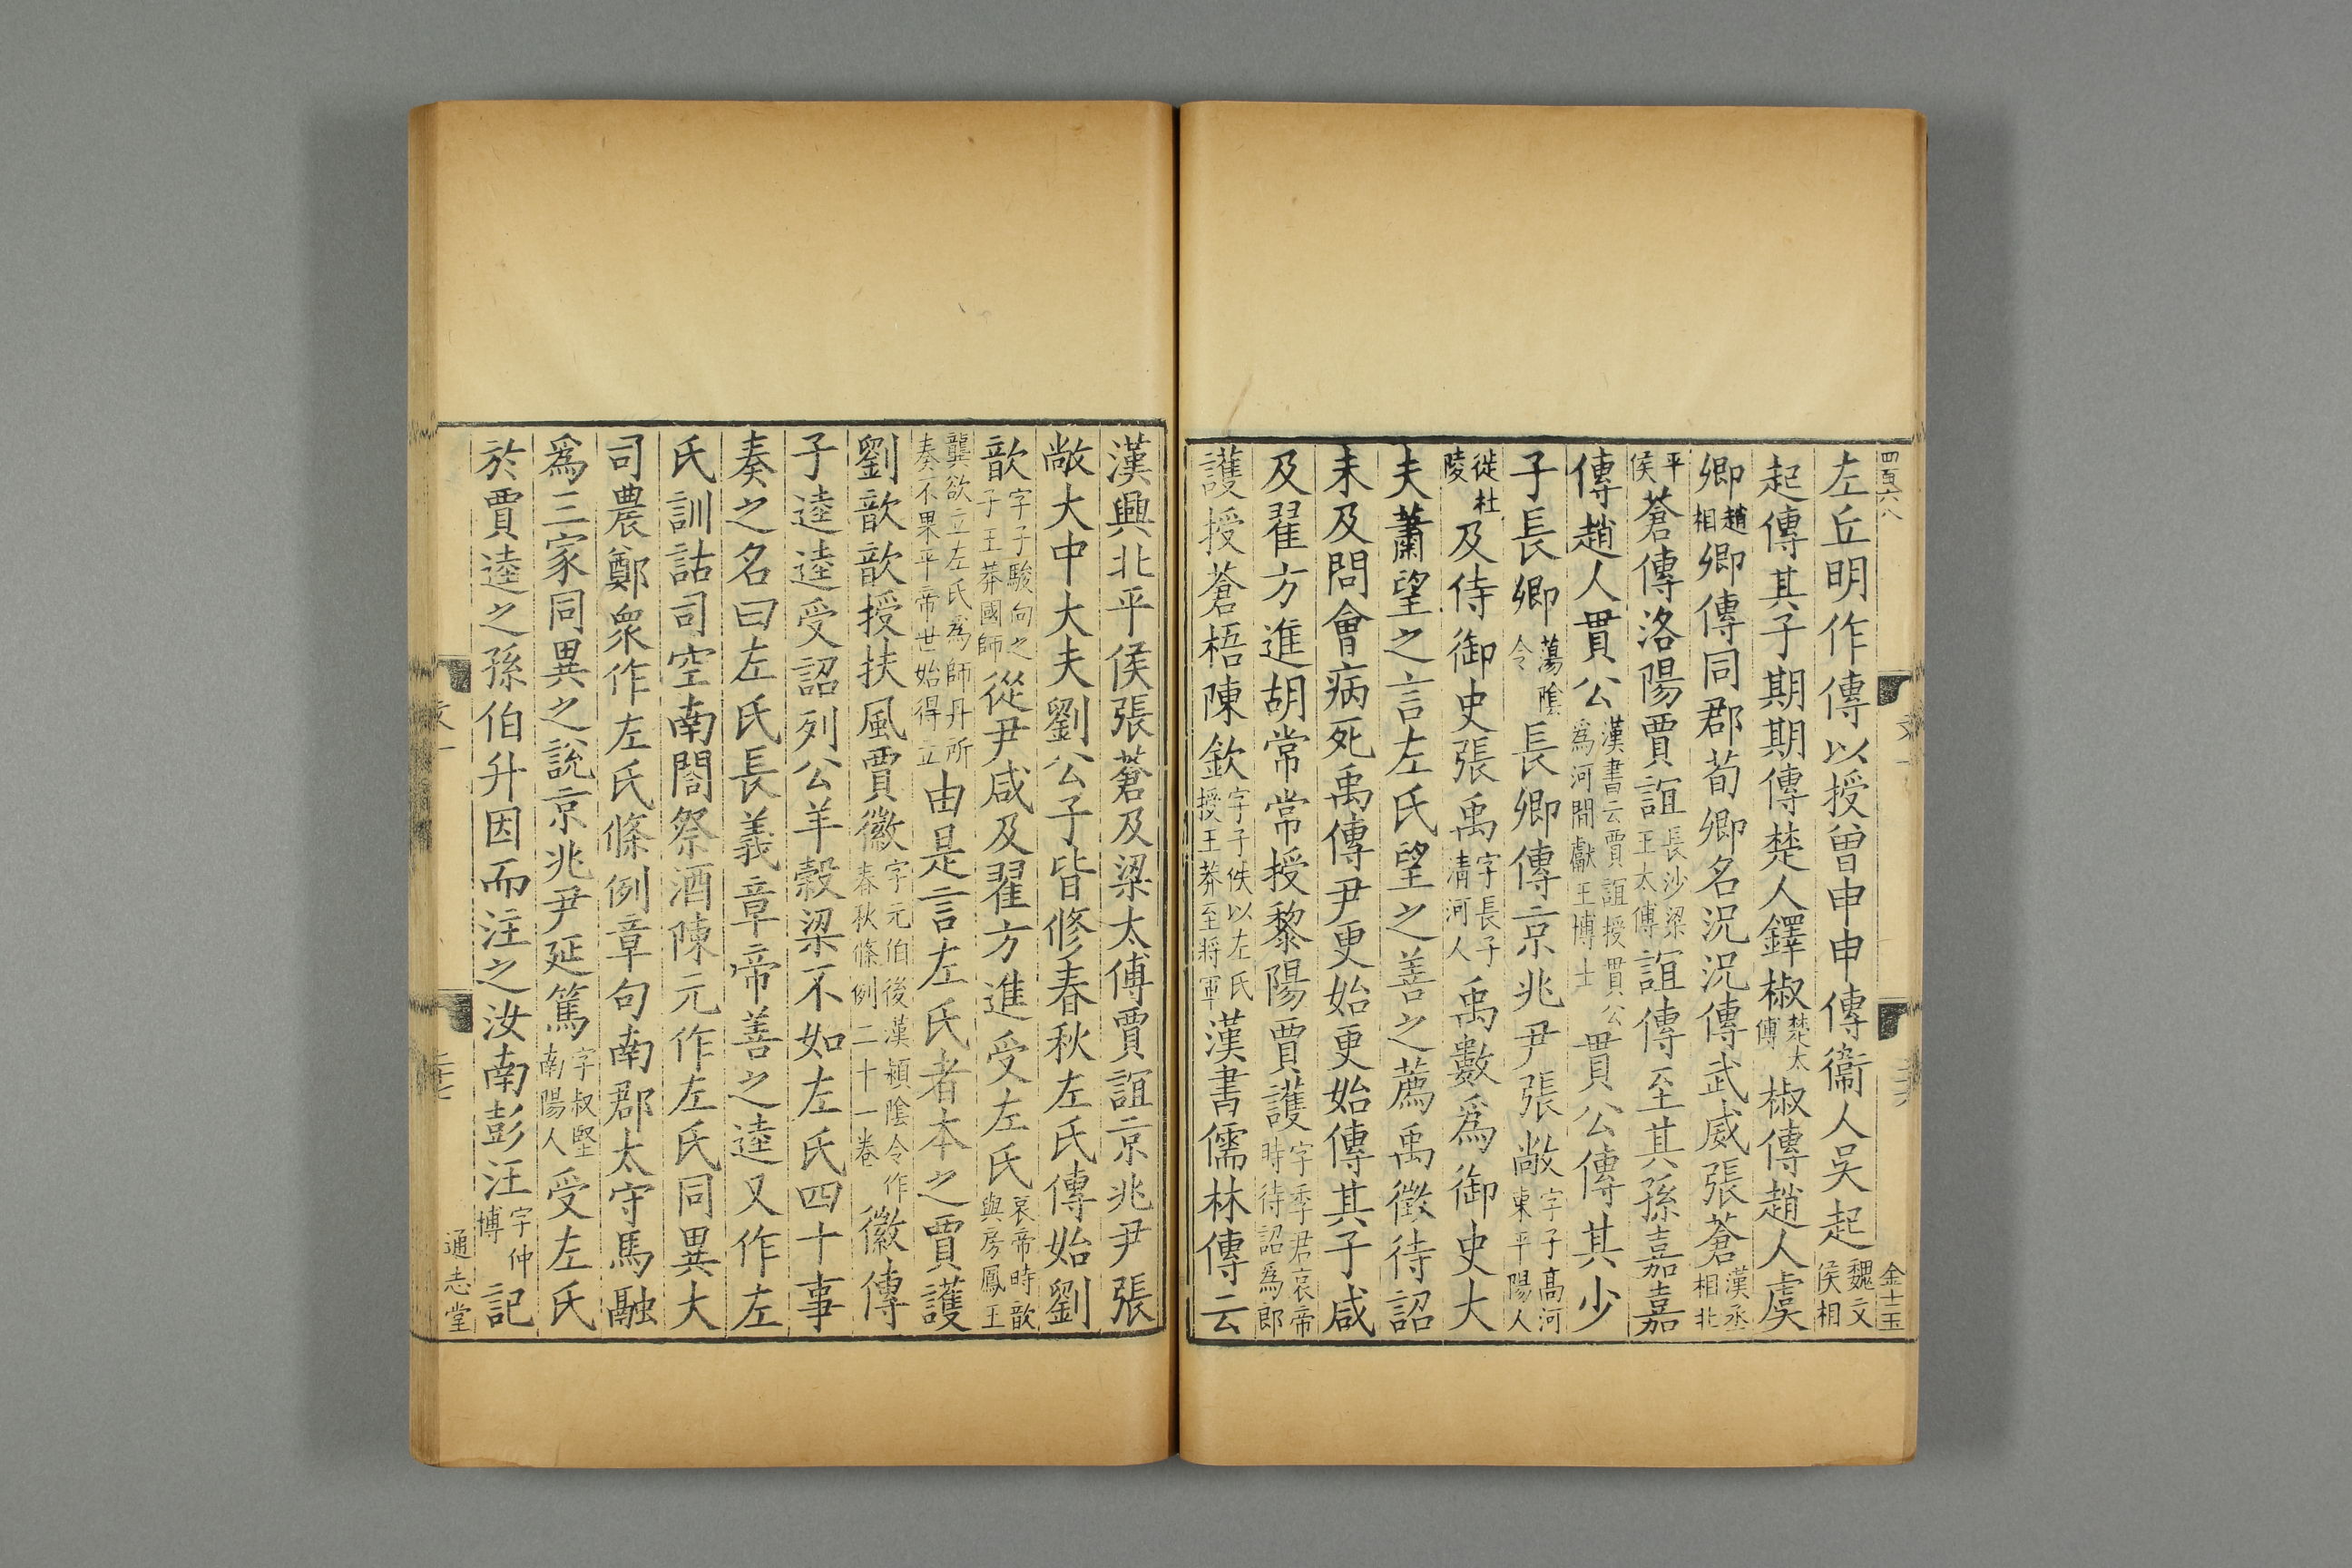 四百六八 金士玉
左丘明作傳以授曾申申傳衞人吳起魏文侯相
起傳其子期期傳楚人鐸椒楚太傅椒傳趙人虞
卿趙相卿傳同郡荀卿名況況傳武威張蒼漢丞相北
平侯蒼傳洛陽賈誼長沙梁王太傅誼傳至其孫嘉嘉
傳趙人貫公漢書云賈誼授貫公爲河間獻王博士貫公傳其少
子長卿蕩陰令長卿傳京兆尹張敞字子高河東平陽人
徙杜陵及侍御史張禹字長子清河人禹數爲御史大
夫蕭望之言左氏望之善之薦禹徵待詔
未及問會病死禹傳尹更始更始傳其子咸
及翟方進胡常常授黎陽賈護字季君哀帝時待詔爲郎
護授蒼梧陳欽字子佚以左氏授王莽至將軍漢書儒林傳云
漢興北平侯張蒼及梁太傅賈誼京兆尹張
敞大中大夫劉公子皆修春秋左氏傳始劉
歆字子駿向之子王莽國師從尹咸及翟方進受左氏哀帝時歆與房鳳王
龔欲立左氏爲師丹所奏不果平帝世始得立由是言左氏者本之賈護
劉歆歆授扶風賈徽字元伯後漢潁陰令作春秋條例二十一卷徽傳
子逵逵受詔列公羊穀梁不如左氏四十事
奏之名曰左氏長義章帝善之逵又作左
氏訓詁司空南閤祭酒陳元作左氏同異大
司農鄭衆作左氏條例章句南郡太守馬融
爲三家同異之說京兆尹延篤字叔堅南陽人受左氏
於賈逵之孫伯升因而注之汝南彭汪字仲博記
通志堂